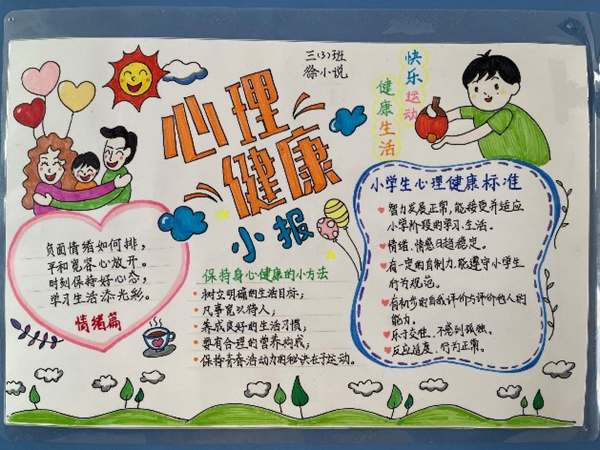 三(3)班
徐小说
快乐运动
健康生活
心理
健康
小报
负面情绪如何排,
平和宽容心放开。
时刻保持好心态,
学习生活添光彩。
情绪篇
保持身心健康的小方法
树立明确的生活目标;
凡事宽以待人;
养成良好的生活习惯;
要有合理的营养构成;
保持青春活动力的秘诀在于运动。
小学生心理健康标准
智力发展正常,能接受并适应
小学阶段的学习、生活。
情绪、情感日趋稳定。
有一定的自制力,能遵守小学生
行为规范。
有初步的自我评价与评价他人的
能力。
乐于交往、不感到孤独。
反应适度、行为正常。